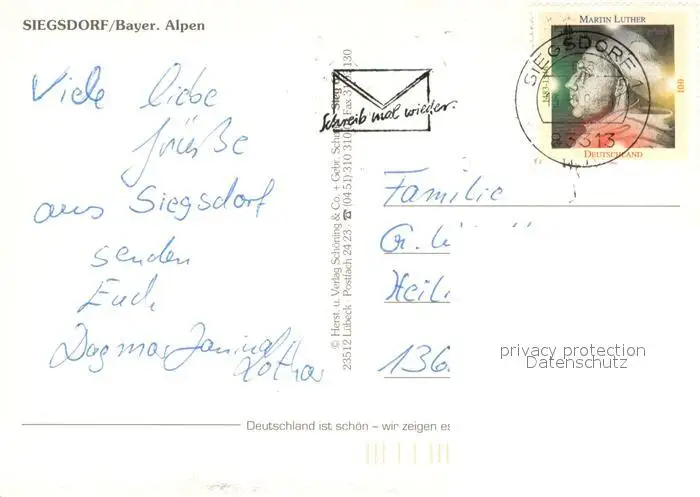 SIEGSDORF/Bayer. Alpen
Viele liebe
Grüße
aus Siegsdorf
senden
Euch
Dagmar
Lothar
© Herst. u. Verlag Schöning & Co. + Gebr. Schmidt
23512 Lübeck Postfach 24 23 ☎ (04 51) 310 310
Schreib mal wieder.
MARTIN LUTHER
DEUTSCHLAND
100
SIEGSDORF
83313
Familie
G.
Heil
136
privacy protection
Datenschutz
Deutschland ist schön – wir zeigen es